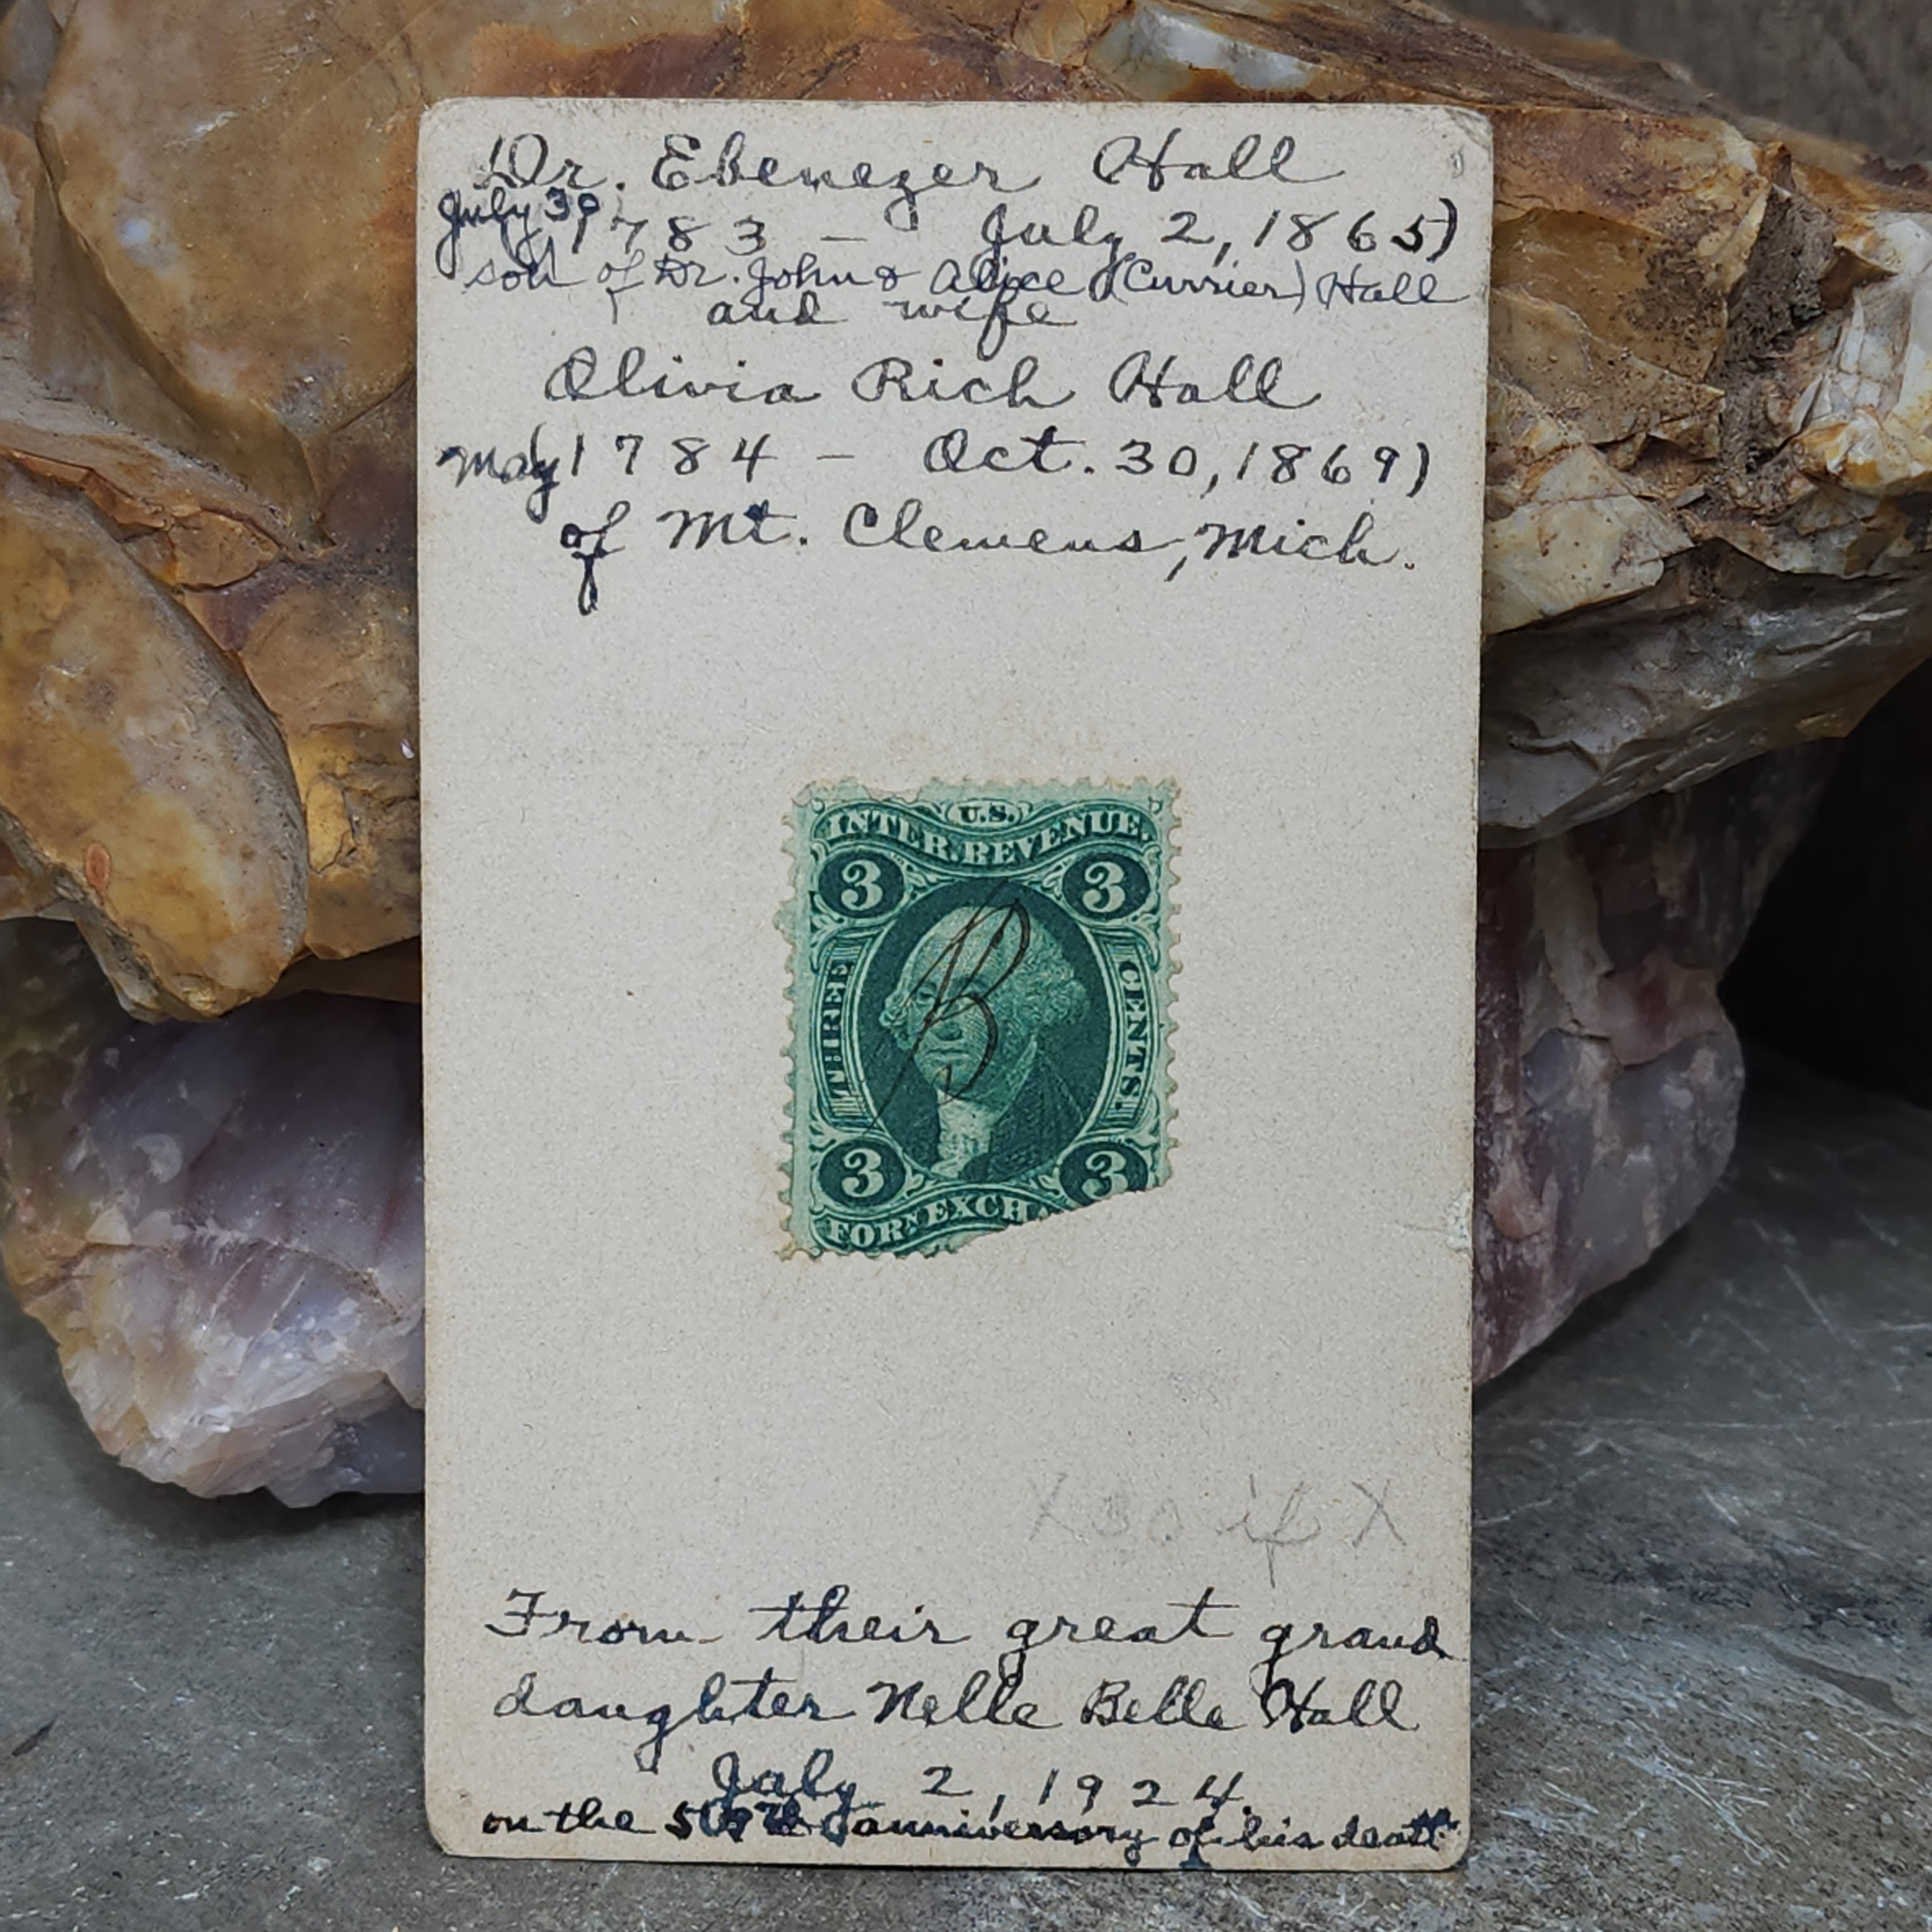 Dr. Ebenezer Hall
July 30, 1783 – July 2, 1865)
son of Dr. John & Alice (Currier) Hall
and wife
Olivia Rich Hall
May (1784 – Oct. 30, 1869)
of Mt. Clemens, Mich.
U.S.
INTER. REVENUE.
3 3
THREE
CENTS.
B
3 3
FOR^N EXCHA
X 30 X
From their great grand
daughter Nelle Belle Hall
July 2, 1924.
on the anniversary of his death